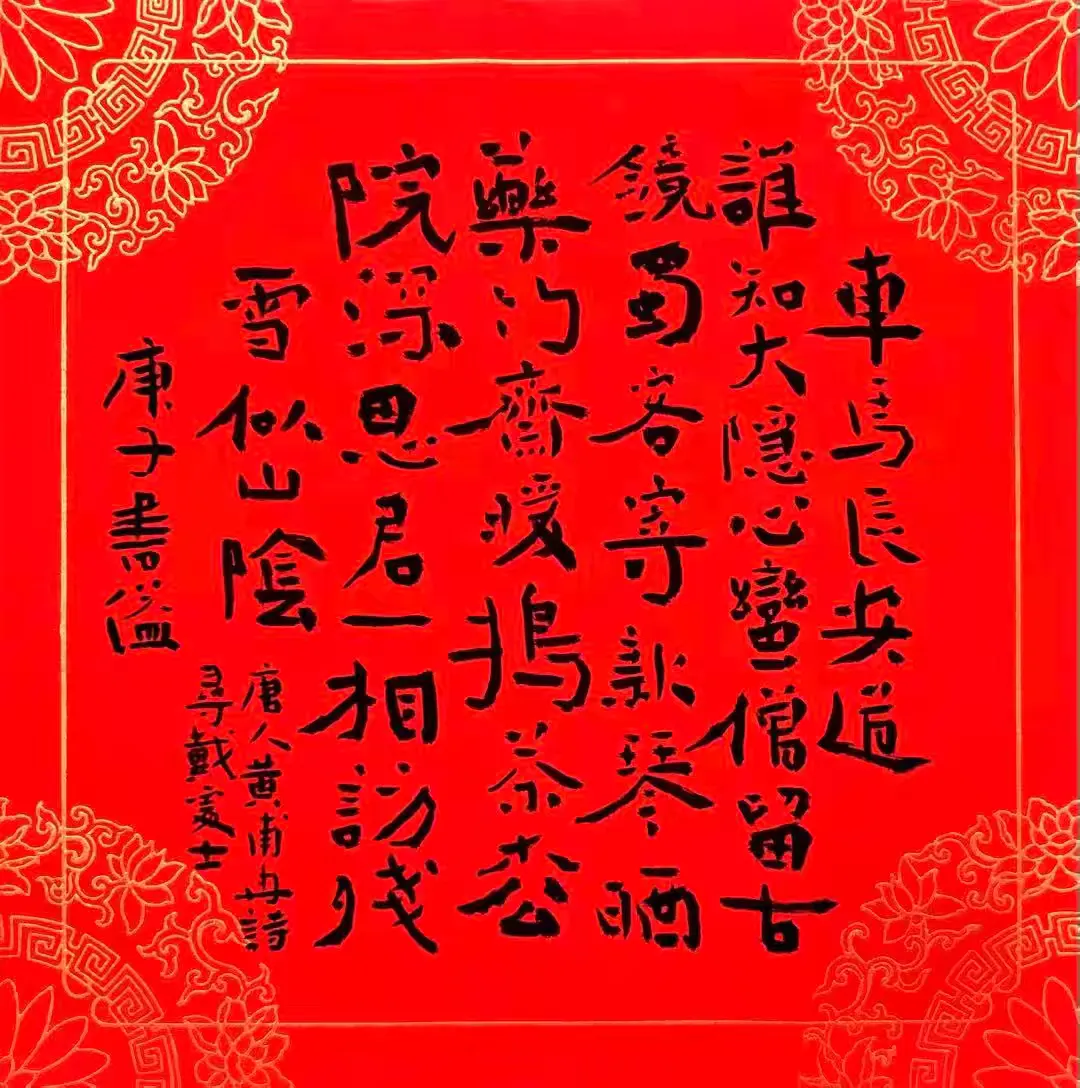 車馬長安道
誰知大隱心蠻僧留古
鏡蜀客寄新琴晒
藥竹齋暖搗茶枩
院深思君一相訪残
雪似山陰
唐人黄甫冉詩
尋戴處士
庚子書